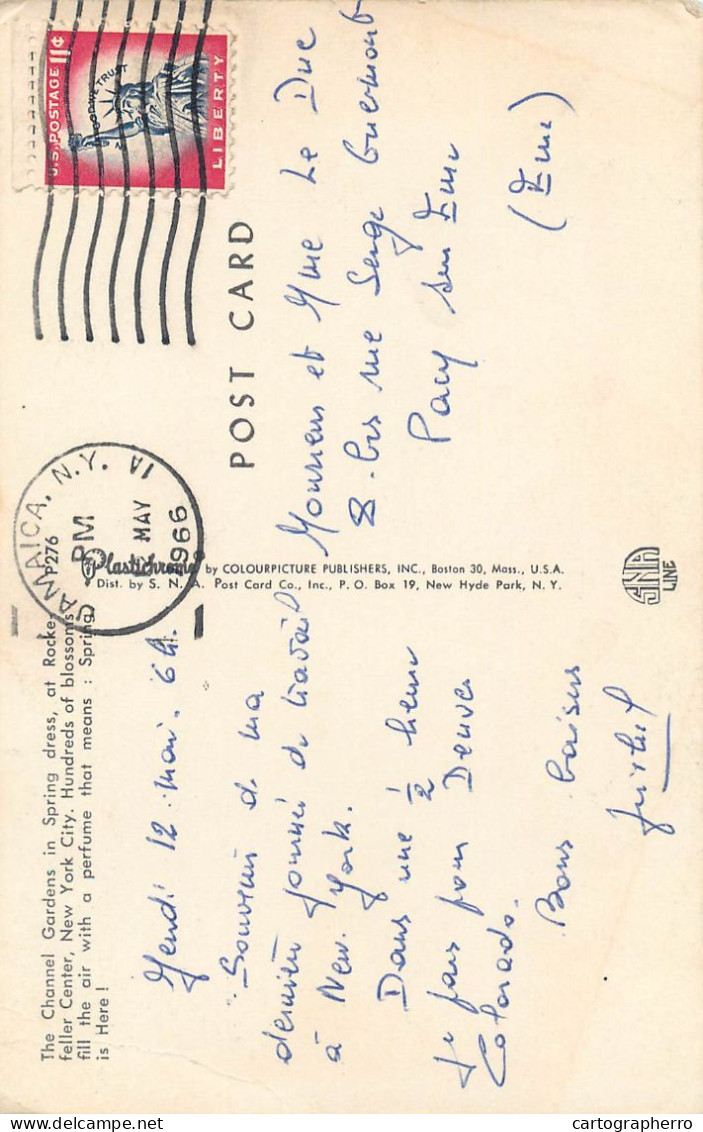 The Channel Gardens in Spring dress, at Rocke-
feller Center, New York City. Hundreds of blossoms
fill the air with a perfume that means : Spring
is Here !
P276
Jeudi 12 mai. 6h.
Souvenir de ma
dernière journée de travail
à New. York.
Dans une 1/2 heure
je pars pour Denver
Colorado.
Bons baisers
Plastichrome by COLOURPICTURE PUBLISHERS, INC., Boston 30, Mass., U.S.A.
Dist. by S. N. A. Post Card Co., Inc., P. O. Box 19, New Hyde Park, N. Y.
SNA
LINE
JAMAICA, N.Y. 1A
PM
MAY
1966
U.S. POSTAGE 11¢
IN GOD WE TRUST
LIBERTY
POST CARD
Monsieur et Mme Le Duc
8. bis rue Serge Guermont
Pacy sur Eure
(Eure)
cartographerro